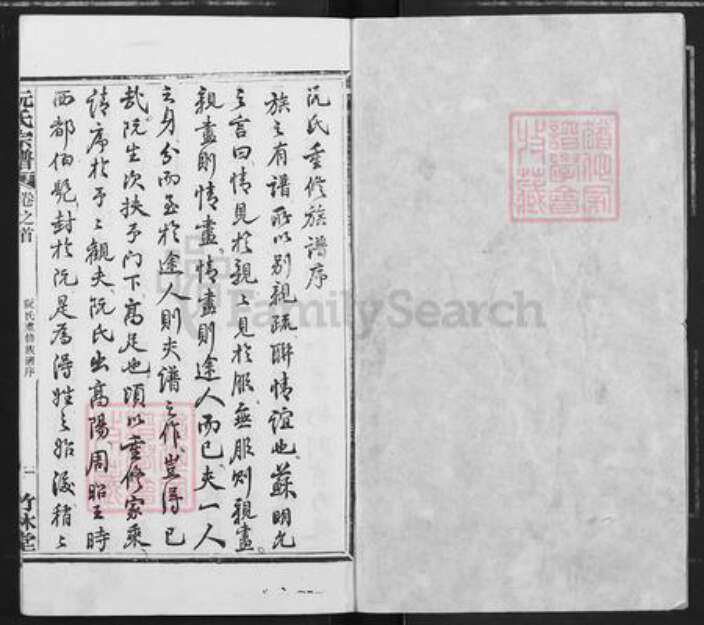 阮氏重修族譜序
族之有譜所以别親疏聯情誼也蘇明允
之言曰情見於親親見於服無服則親盡
親盡則情盡情盡則途人而已夫一人
之身分而至於途人則夫譜之作豈得已
哉阮生次扶予門下高足也頃以重修家乘
請序於予予觀夫阮氏出高陽周昭王時
西都伯髡封於阮是為得姓之始漢
阮氏宗譜 卷之首 阮氏重修族譜序 一 竹林堂
譜學會
收藏
FamilySearch